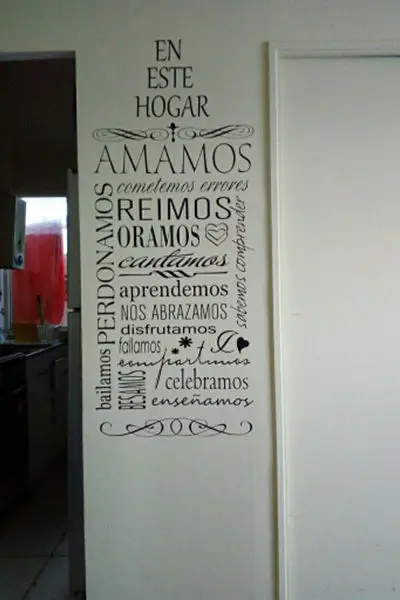 EN
ESTE
HOGAR
AMAMOS
cometemos errores
REIMOS
ORAMOS
cantamos
sabemos comprender
PERDONAMOS
aprendemos
NOS ABRAZAMOS
disfrutamos
fallamos
compartimos
bailamos
BESAMOS
celebramos
enseñamos